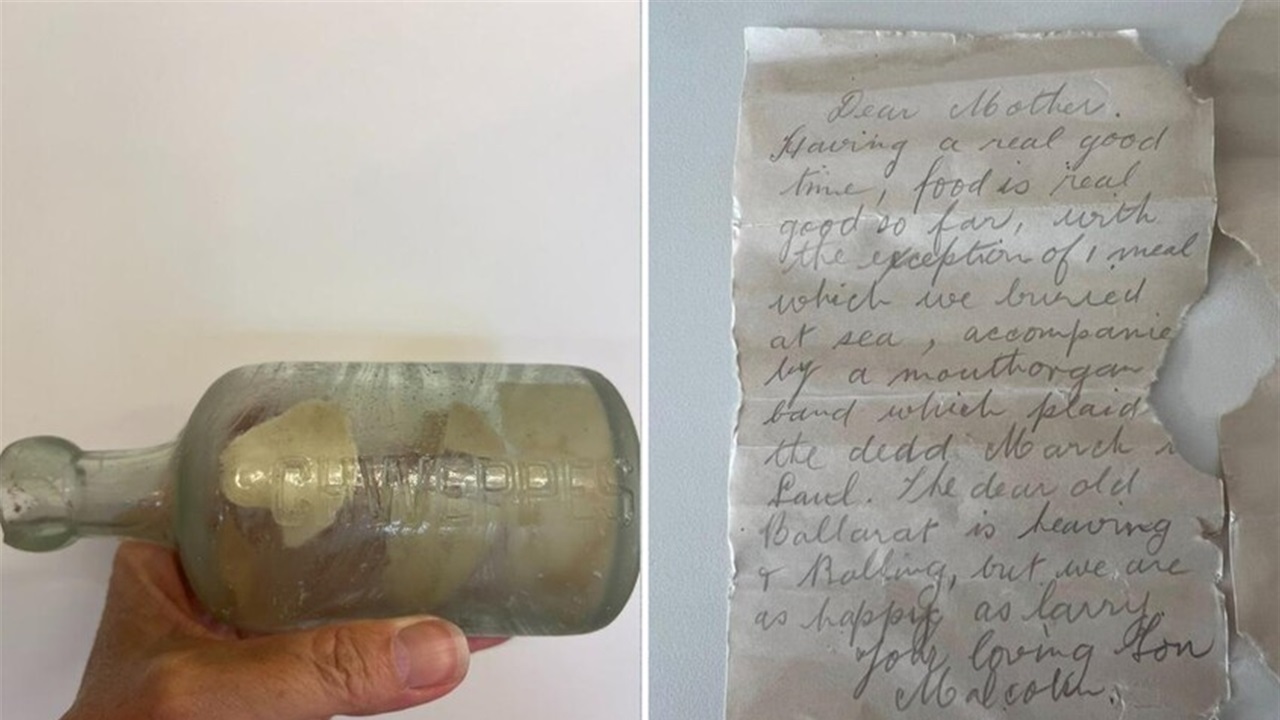 SCHWEPPES
Dear Mother.
Having a real good
time, food is real
good so far, with
the exception of 1 meal
which we buried
at sea, accompanie
by a mouthorgan
band which plaid
the dedd March
Saul. The dear old
Ballarat is heaving
& Rolling, but we are
as happy as larry.
Your loving Son
Malcolm.